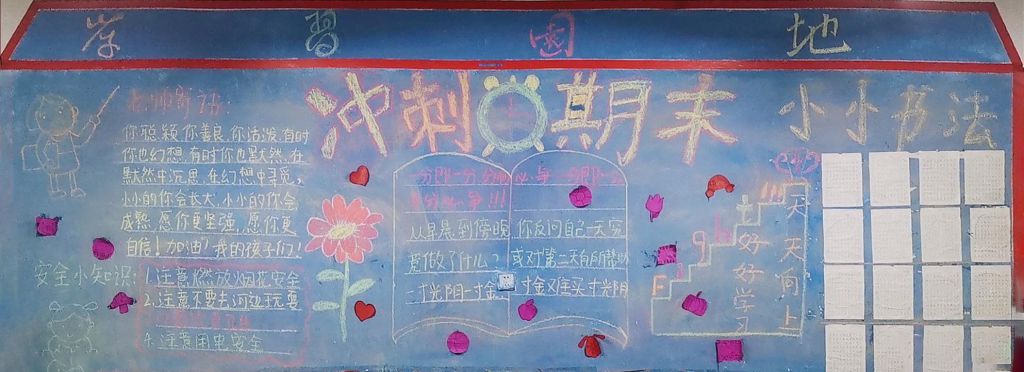 学习园地
冲刺期末
小小书法
老师寄语:
你聪颖,你善良,你活泼,有时
你也幻想,有时你也默然,在
默然中沉思,在幻想中寻觅,
小小的你会长大,小小的你会
成熟,愿你更坚强,愿你更
自信!加油!我的孩子们!
安全小知识:
1.注意燃放烟花安全
2.注意不要去河边玩耍
4.注意用电安全
从早晨到傍晚
做了什么?
一寸光阴一寸金
你反问自己一天究
或对第二天有所帮助
寸金难买寸光阴
好好学习
天天向上